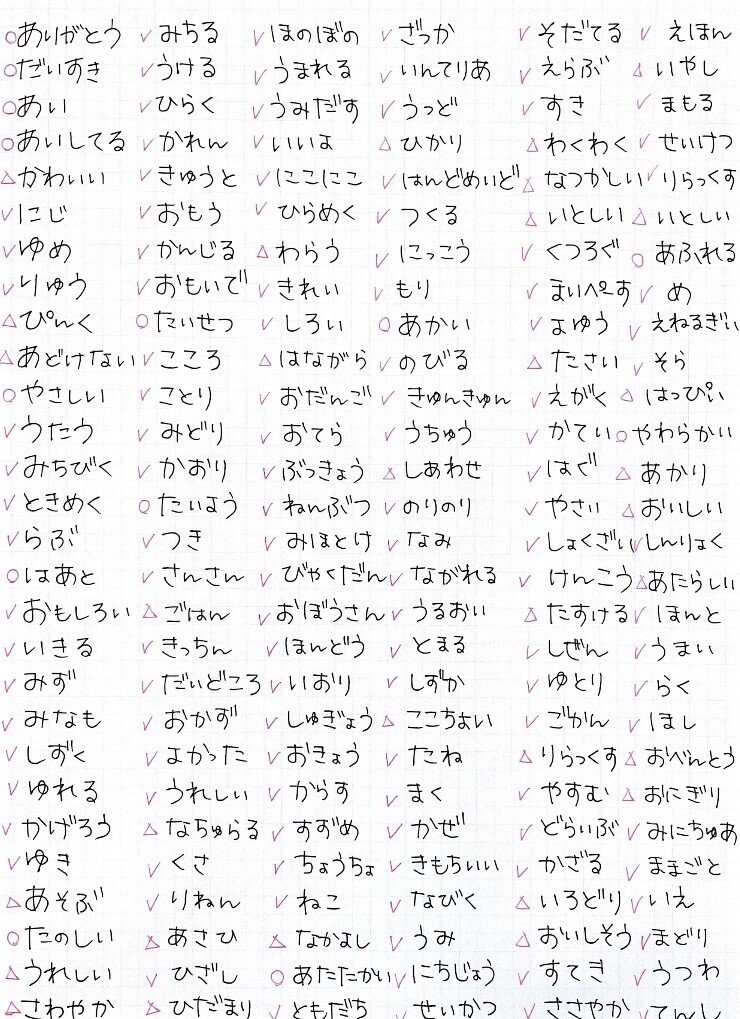 ○ありがとう ✓みちる ✓ほのぼの ✓ざっか ✓そだてる ✓えほん
○だいすき ✓うける ✓うまれる ✓いんてりあ ✓えらぶ △いやし
○あい ✓ひらく ✓うみだす ✓うっど ✓すき ✓まもる
○あいしてる ✓かれん ✓いいよ △ひかり △わくわく ✓せいけつ
△かわいい ✓きゅうと ✓にこにこ ✓はんどめいど △なつかしい ✓りらっくす
✓にじ ✓おもう ✓ひらめく ✓つくる △いとしい △いとしい
✓ゆめ ✓かんじる △わらう ✓にっこう ✓くつろぐ ○あふれる
✓りゅう ✓おもいで ✓きれい ✓もり ✓まいぺーす ✓め
△ぴんく ○たいせつ ✓しろい ○あかい ✓よゆう ✓えねるぎい
△あどけない ✓こころ △はながら ✓のびる △たさい ✓そら
○やさしい ✓ことり ✓おだんご ✓きゅんきゅん ✓えがく △はっぴい
✓うたう ✓みどり ✓おてら ✓うちゅう ✓かてい ○やわらかい
✓みちびく ✓かおり ✓ぶっきょう △しあわせ ✓はぐ △あかり
✓ときめく ○たいよう ✓ねんぶつ ✓のりのり ✓やさい △おいしい
✓らぶ ✓つき ✓みほとけ ✓なみ ✓しょくざい ✓しんりょく
○はあと ✓さんさん ✓びゃくだん ✓ながれる ✓けんこう △あたらしい
✓おもしろい △ごはん ✓おぼうさん ✓うるおい △たすける ✓ほんと
✓いきる ✓きっちん ✓ほんどう ✓とまる ✓しぜん ✓うまい
✓みず ✓だいどころ ✓いおり ✓しずか ✓ゆとり ✓らく
✓みなも ✓おかず ✓しゅぎょう △ここちよい ✓ごかん ✓ほし
✓しずく ✓よかった ✓おきょう ✓たね △りらっくす △おべんとう
✓ゆれる ✓うれしい ✓からす ✓まく ✓やすむ △おにぎり
✓かげろう △なちゅらる ✓すずめ ✓かぜ ✓どらいぶ ✓みにちゅあ
✓ゆき ✓くさ ✓ちょうちょ ✓きもちいい ✓かざる ✓ままごと
△あそぶ ✓りねん ✓ねこ ✓なびく △いろどり ✓いえ
○たのしい △あさひ △なかよし ✓うみ △おいしそう ✓まどり
△うれしい ✓ひざし ○あたたかい ✓にちじょう ✓すてき ✓うつわ
△さわやか △ひだまり ✓ともだち ✓せいかつ ✓ささやか ✓てんし